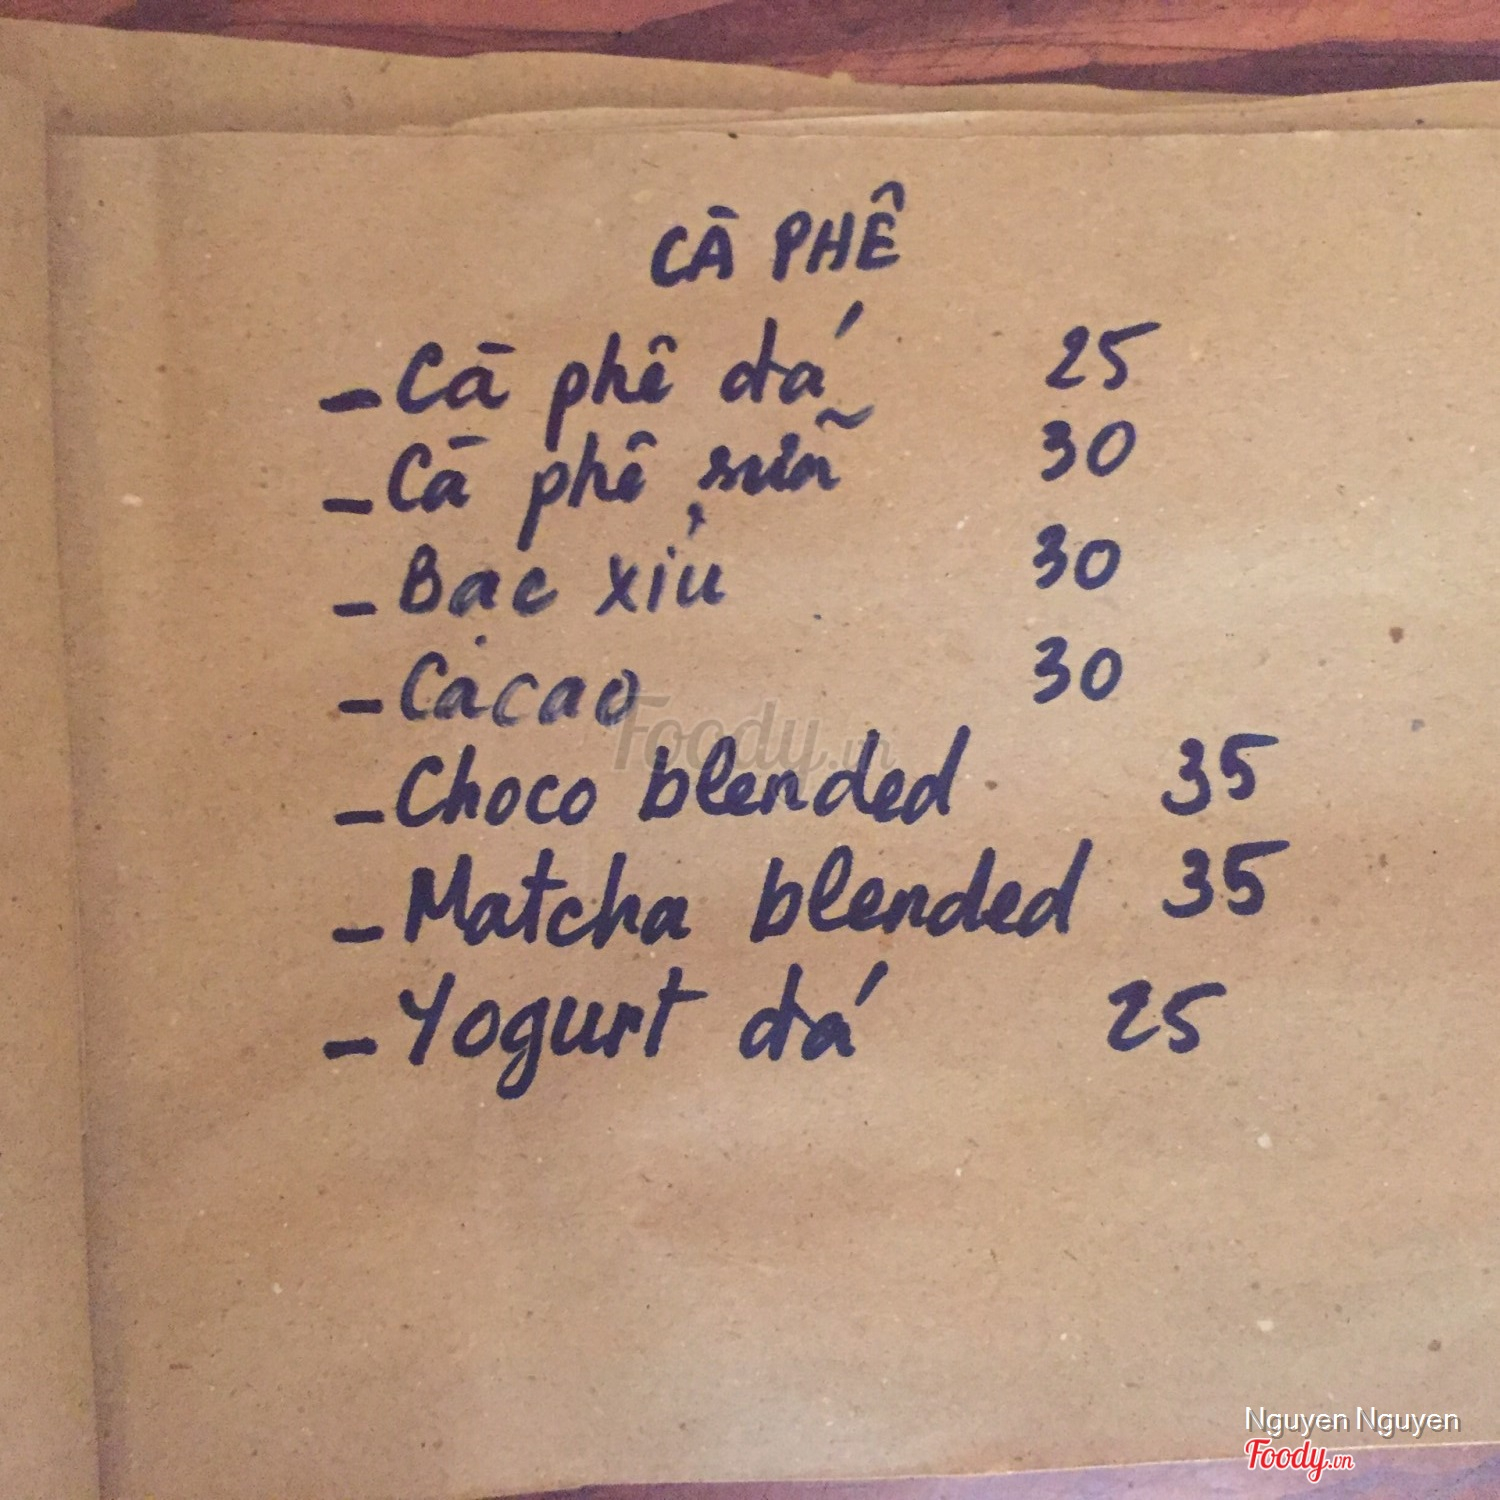 CÀ PHÊ
- Cà phê đá 25
- Cà phê sữa 30
- Bạc xỉu 30
- Cacao 30
Foody.vn
- Choco blended 35
- Matcha blended 35
- Yogurt đá 25
Nguyen Nguyen
Foody.vn